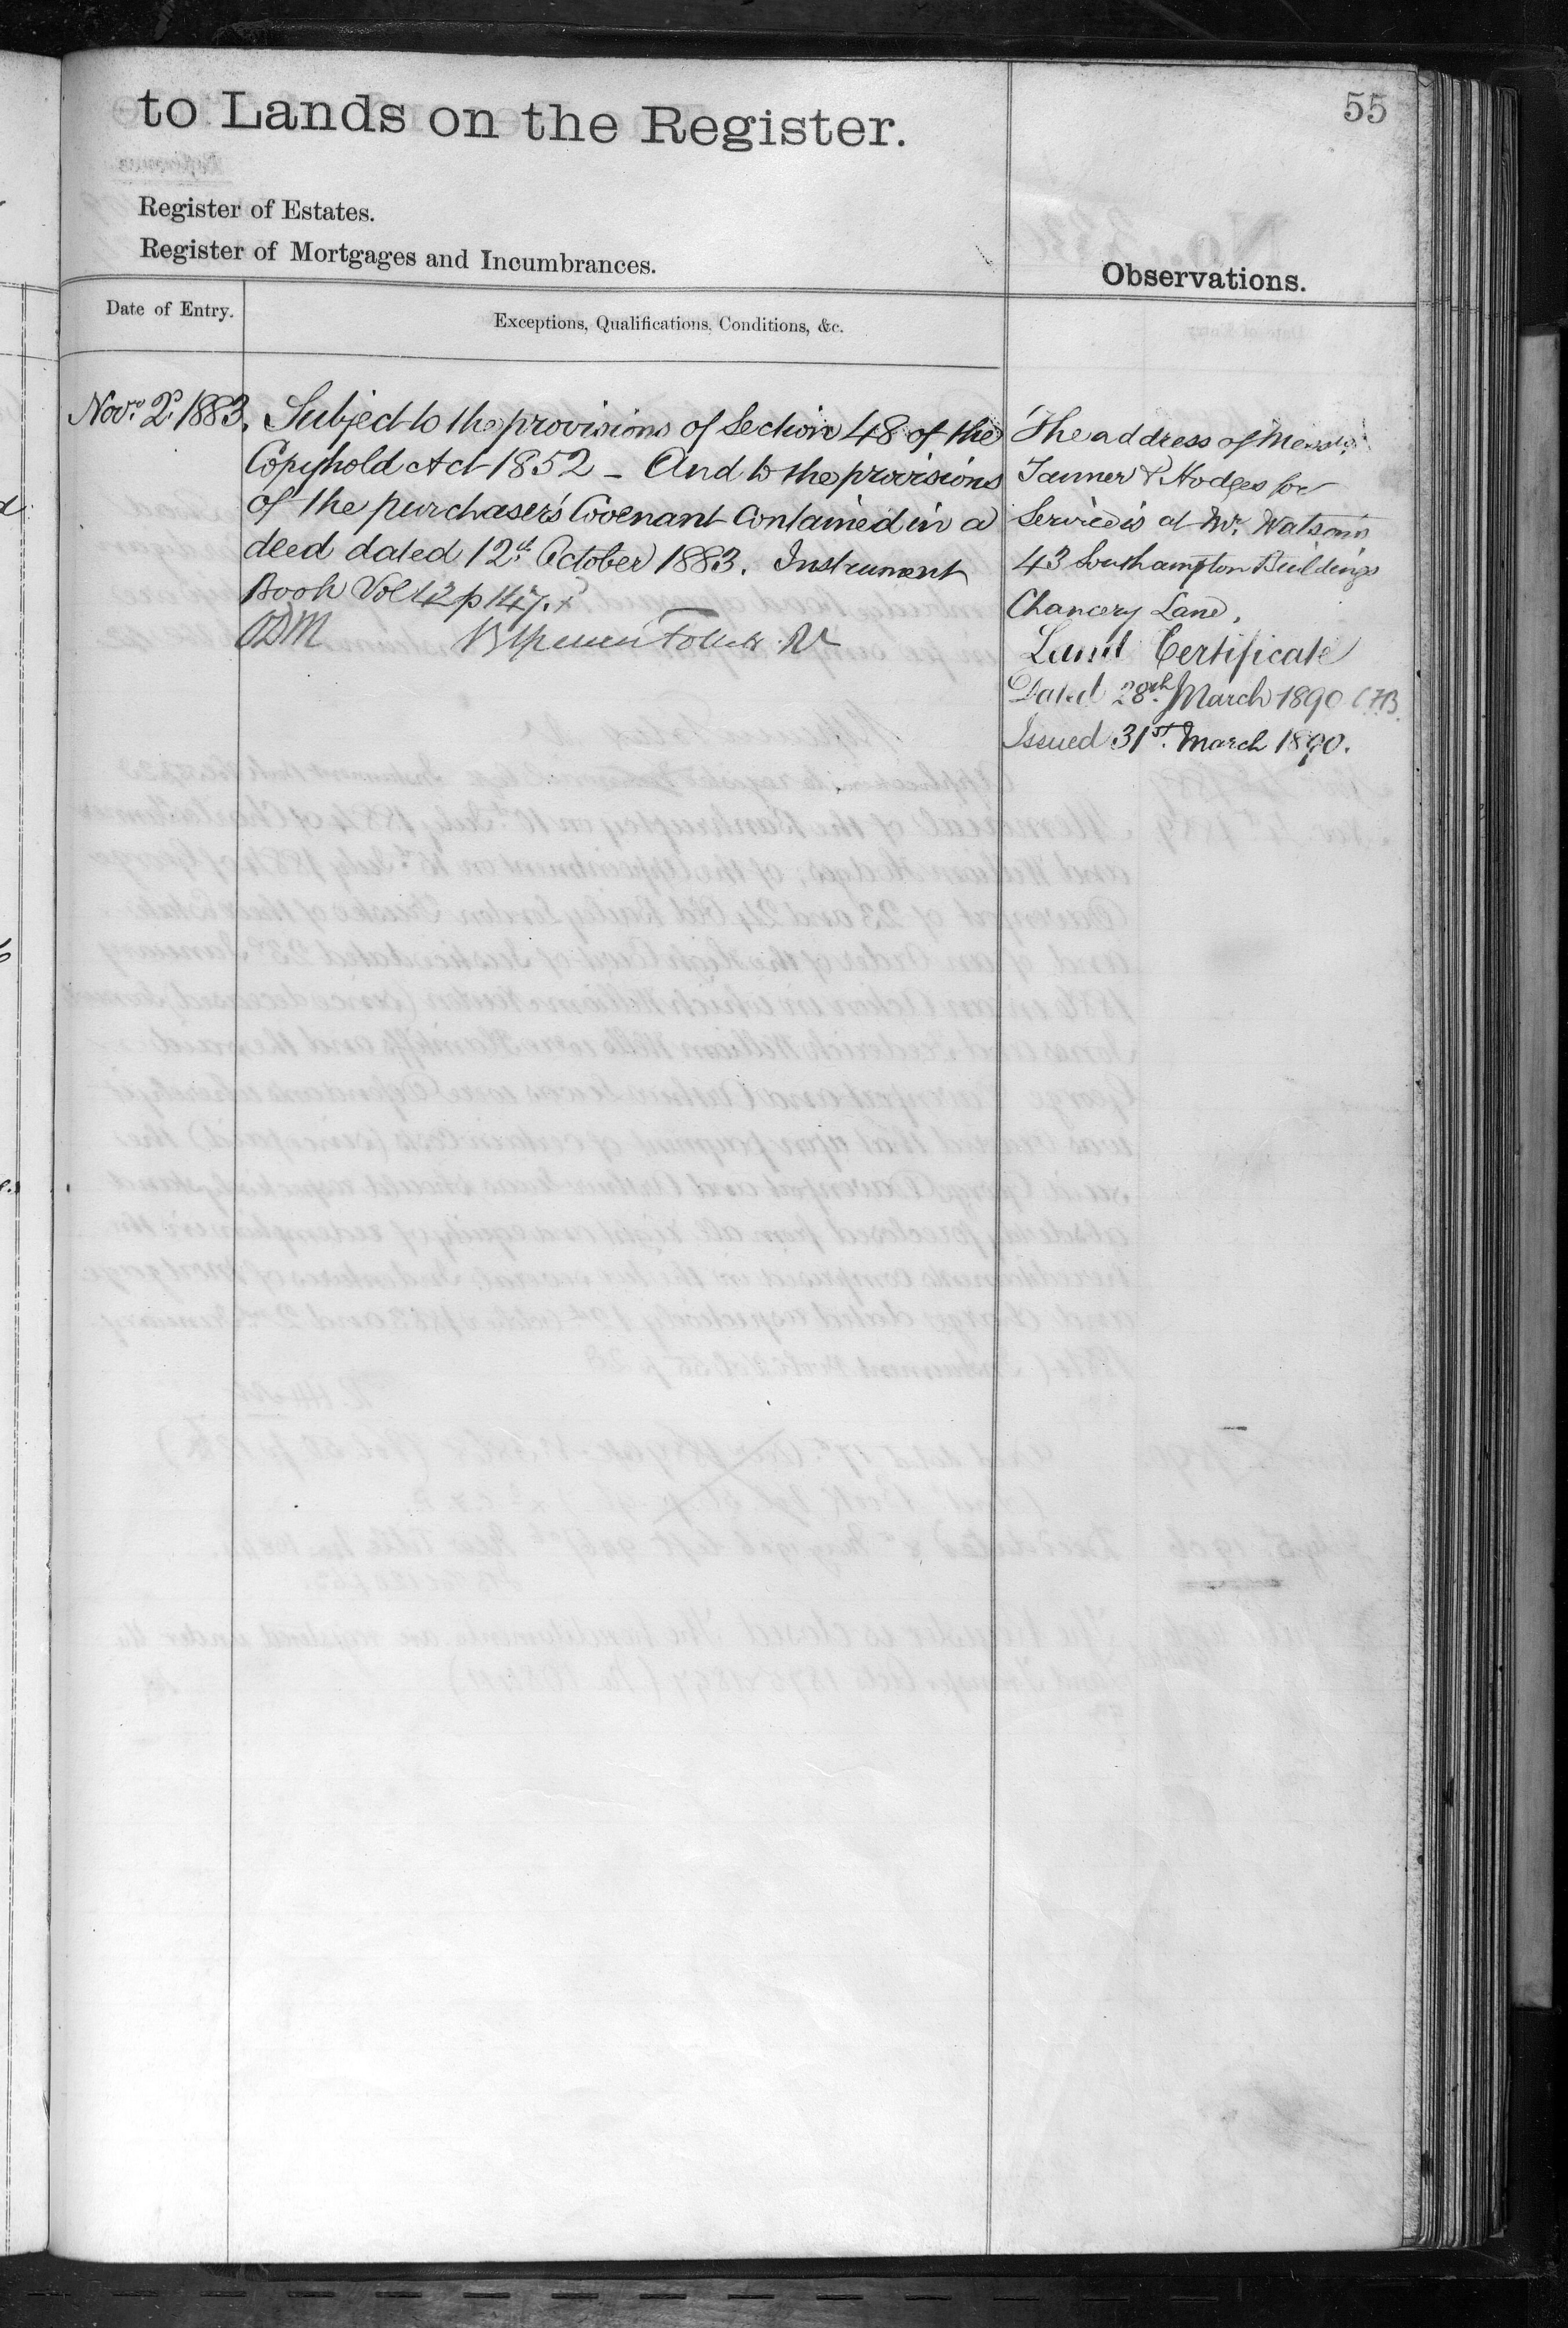 55
to Lands on the Register.
Register of Estates.
Register of Mortgages and Incumbrances.
Observations.
Date of Entry.
Exceptions, Qualifications, Conditions, &c.
Nov.r 2d 1883.
Subject to the provisions of Section 48 of the
Copyhold Act 1852 – And to the provisions
of the purchaser's Covenant Contained in a
deed dated 12th October 1883. Instrument
Book Vol 42 p 147.
The address of Messrs.
Tanner & Hodges for
Service is at Mr. Watson's
43 Southampton Buildings
Chancery Lane.
Land Certificate
Dated 28th March 1890
Issued 31st March 1890.